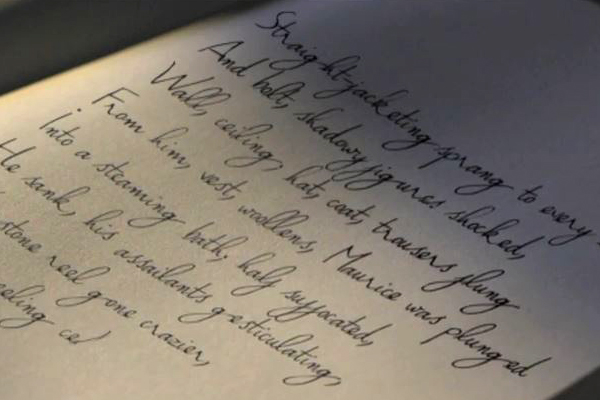 Straight-jacketing sprang to every
And bolt, shadowy figures shocked,
Wall, ceiling, hat, coat, trousers flung
From him, vest, woollens, Maurice was plunged
Into a steaming bath, half suffocated,
He sank, his assailants gesticulating,
stone reel gone crazier,